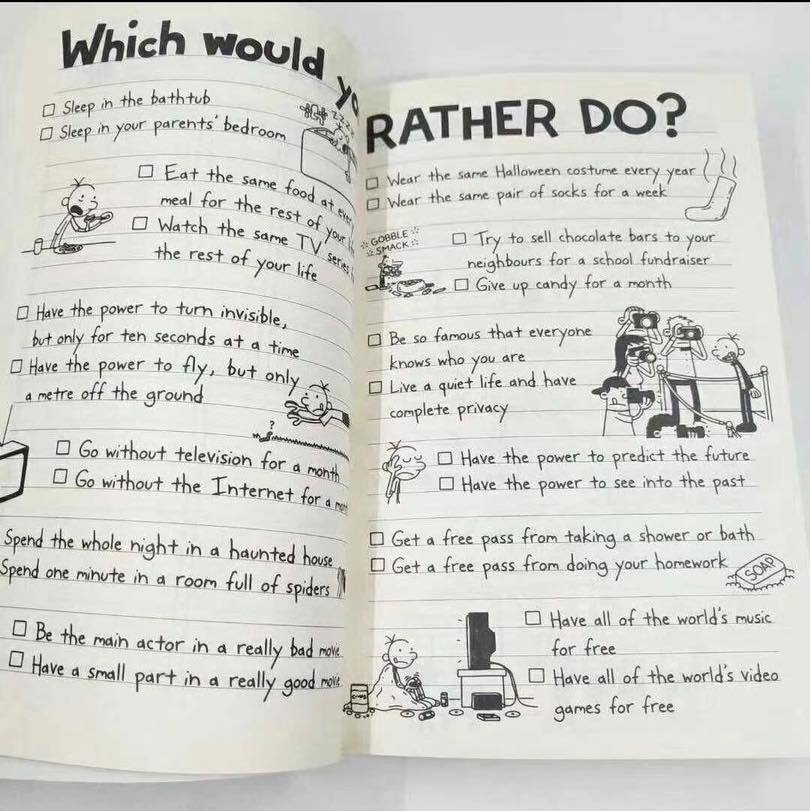 Which would
RATHER DO?
☐ Sleep in the bathtub
☐ Sleep in your parents' bedroom
zzzz
☐ Eat the same food at
meal for the rest of your
☐ Watch the same TV series
the rest of your life
☐ Have the power to turn invisible,
but only for ten seconds at a time
☐ Have the power to fly, but only
a metre off the ground
?
☐ Go without television for a month
☐ Go without the Internet for a
Spend the whole night in a haunted house
Spend one minute in a room full of spiders
☐ Be the main actor in a really bad movie
☐ Have a small part in a really good movie
☐ Wear the same Halloween costume every year
☐ Wear the same pair of socks for a week
GOBBLE
SMACK
☐ Try to sell chocolate bars to your
neighbours for a school fundraiser
☐ Give up candy for a month
☐ Be so famous that everyone
knows who you are
☐ Live a quiet life and have
complete privacy
☐ Have the power to predict the future
☐ Have the power to see into the past
☐ Get a free pass from taking a shower or bath
☐ Get a free pass from doing your homework
SOAP
☐ Have all of the world's music
for free
☐ Have all of the world's video
games for free